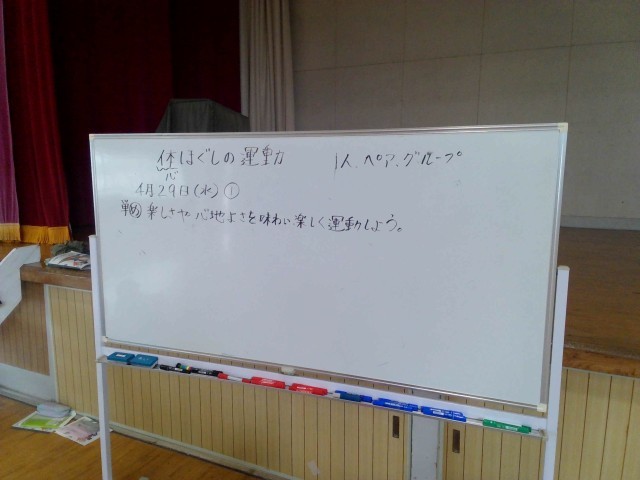 体ほぐしの運動　1人、ペア、グループ
心
4月29日(水) ①
単め 楽しさや心地よさを味わい楽しく運動しよう。